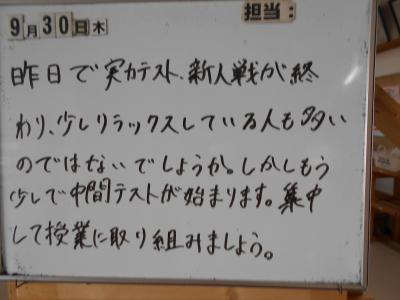 9月30日木 担当:
昨日で実力テスト、新人戦が終
わり、少しリラックスしている人も多い
のではないでしょうか。しかしもう
少しで中間テストが始まります。集中
して授業に取り組みましょう。